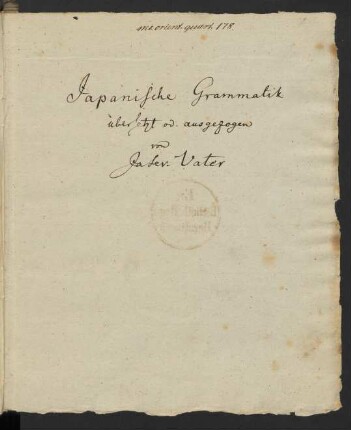 ms. orient. quart. 178.
Japanische Grammatik
übersetzt od. ausgezogen
von
Vater